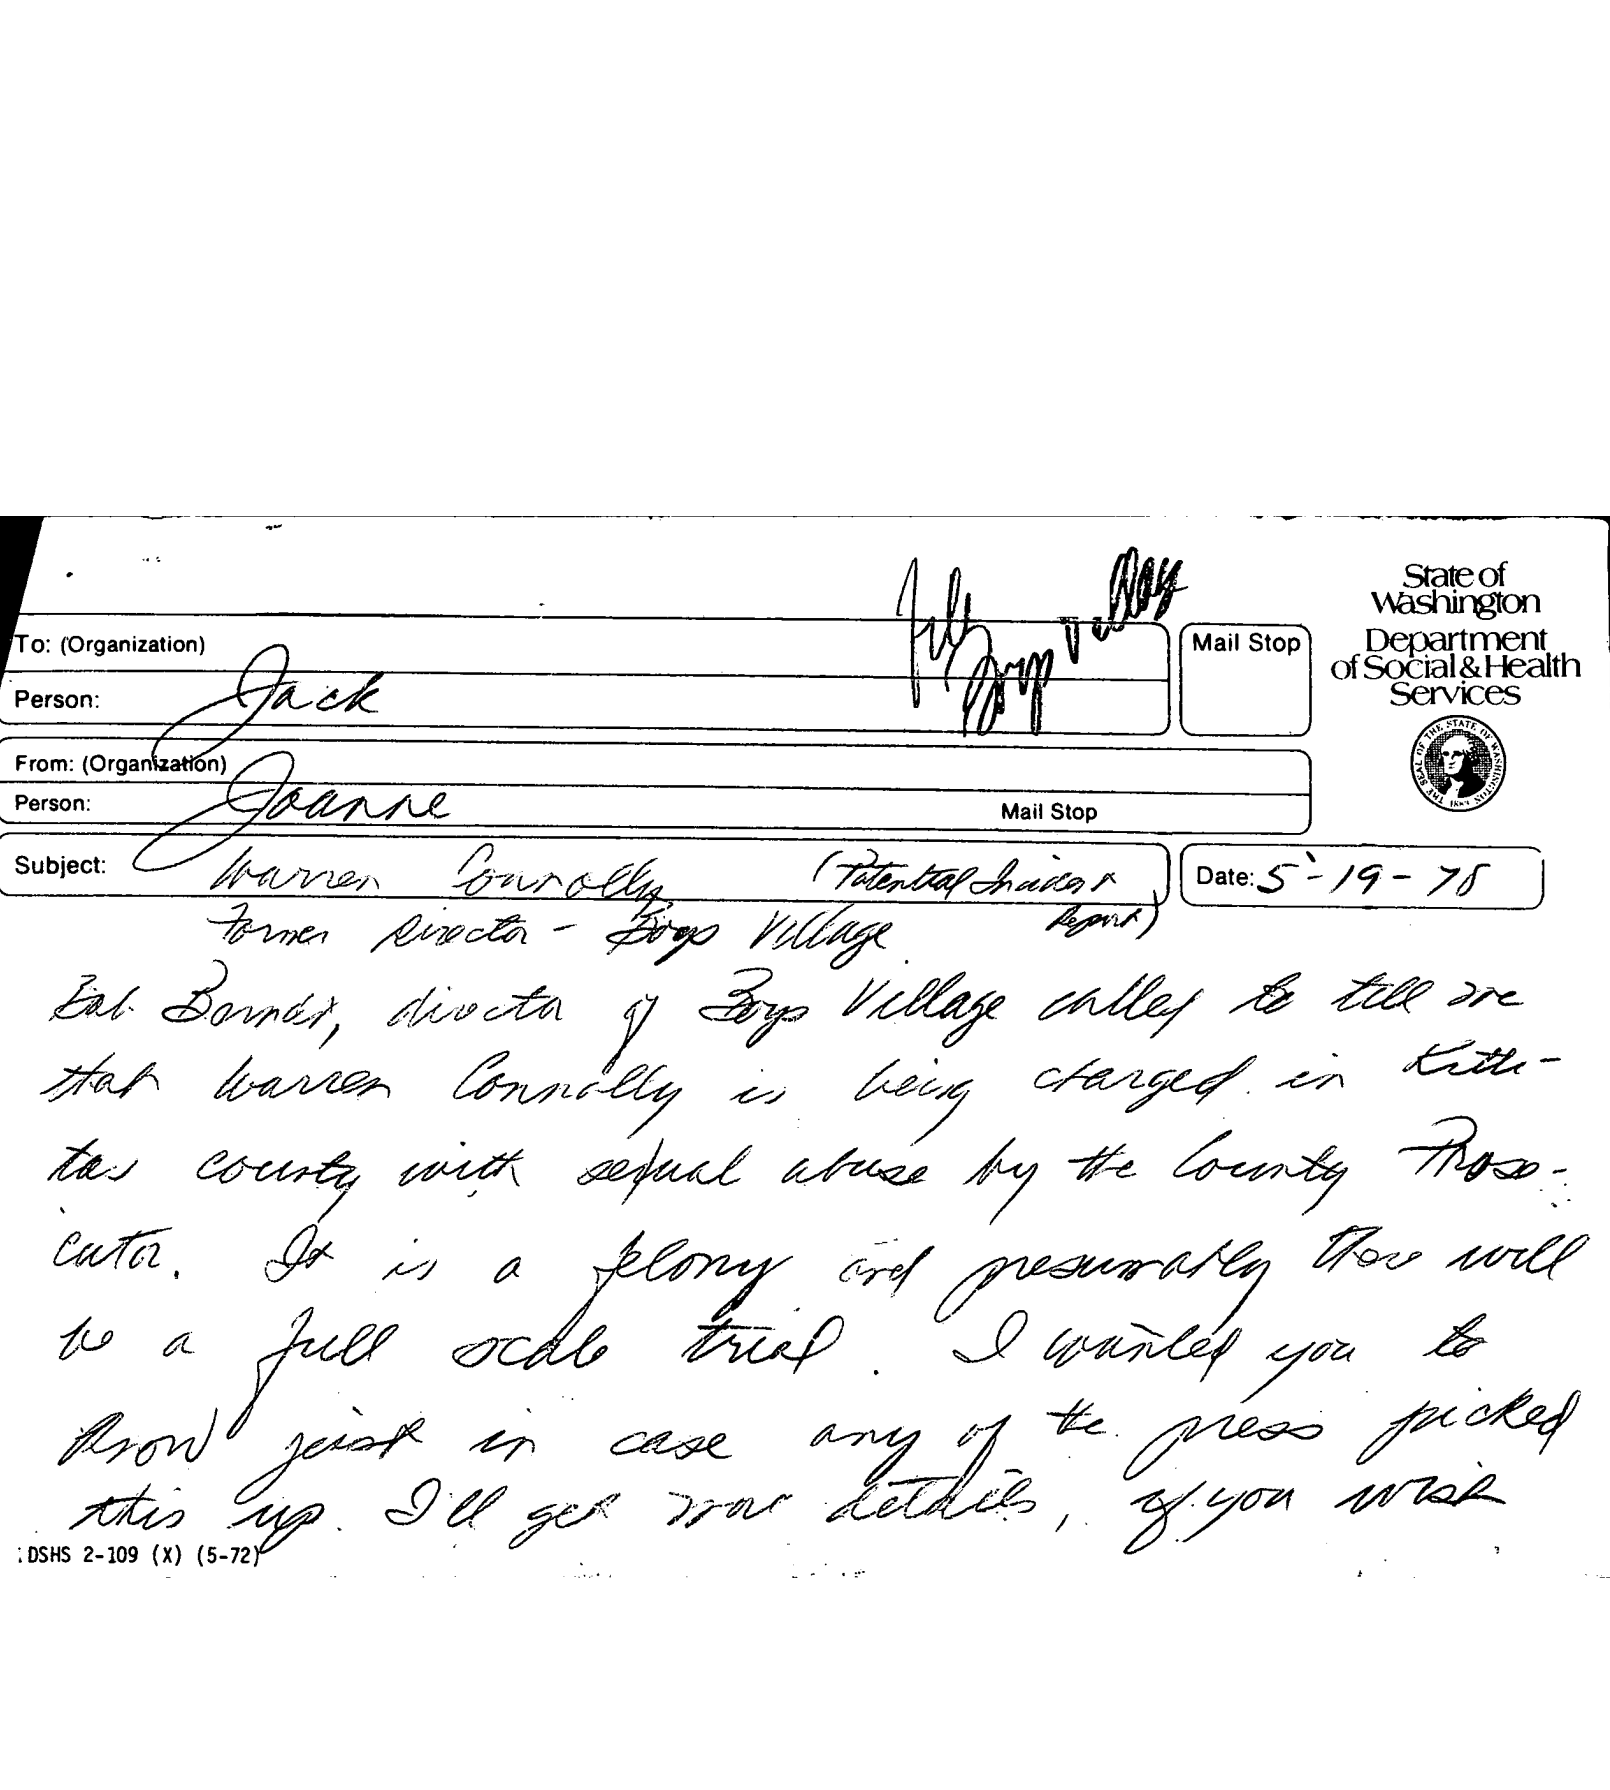 File
Boys Village
State of
Washington
Department
of Social & Health
Services
THE SEAL OF THE STATE OF WASHINGTON
1889
To: (Organization)
Mail Stop
Person: Jack
From: (Organization)
Person: Joanne
Mail Stop
Subject: Warren Connolly (Potential Incident
Report)
Date: 5-19-78
Former Director - Boys Village
Bob, director of Boys Village called to tell me
that Warren Connolly is being charged in Kitti-
tas county with sexual abuse by the County Prose-
cutor. It is a felony and presumably there will
be a full scale trial. I wanted you to
know just in case any of the press picked
this up. I'll get more details, if you wish
DSHS 2-109 (X) (5-72)